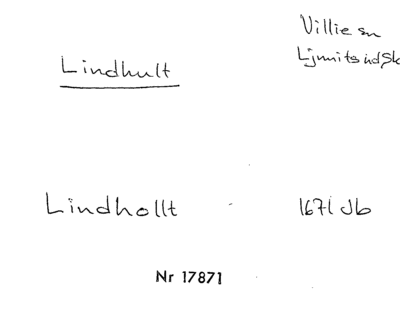 Villie sn
Lindhult
Ljunits hd Sk
Lindhollt 1671 Jb
Nr 17871